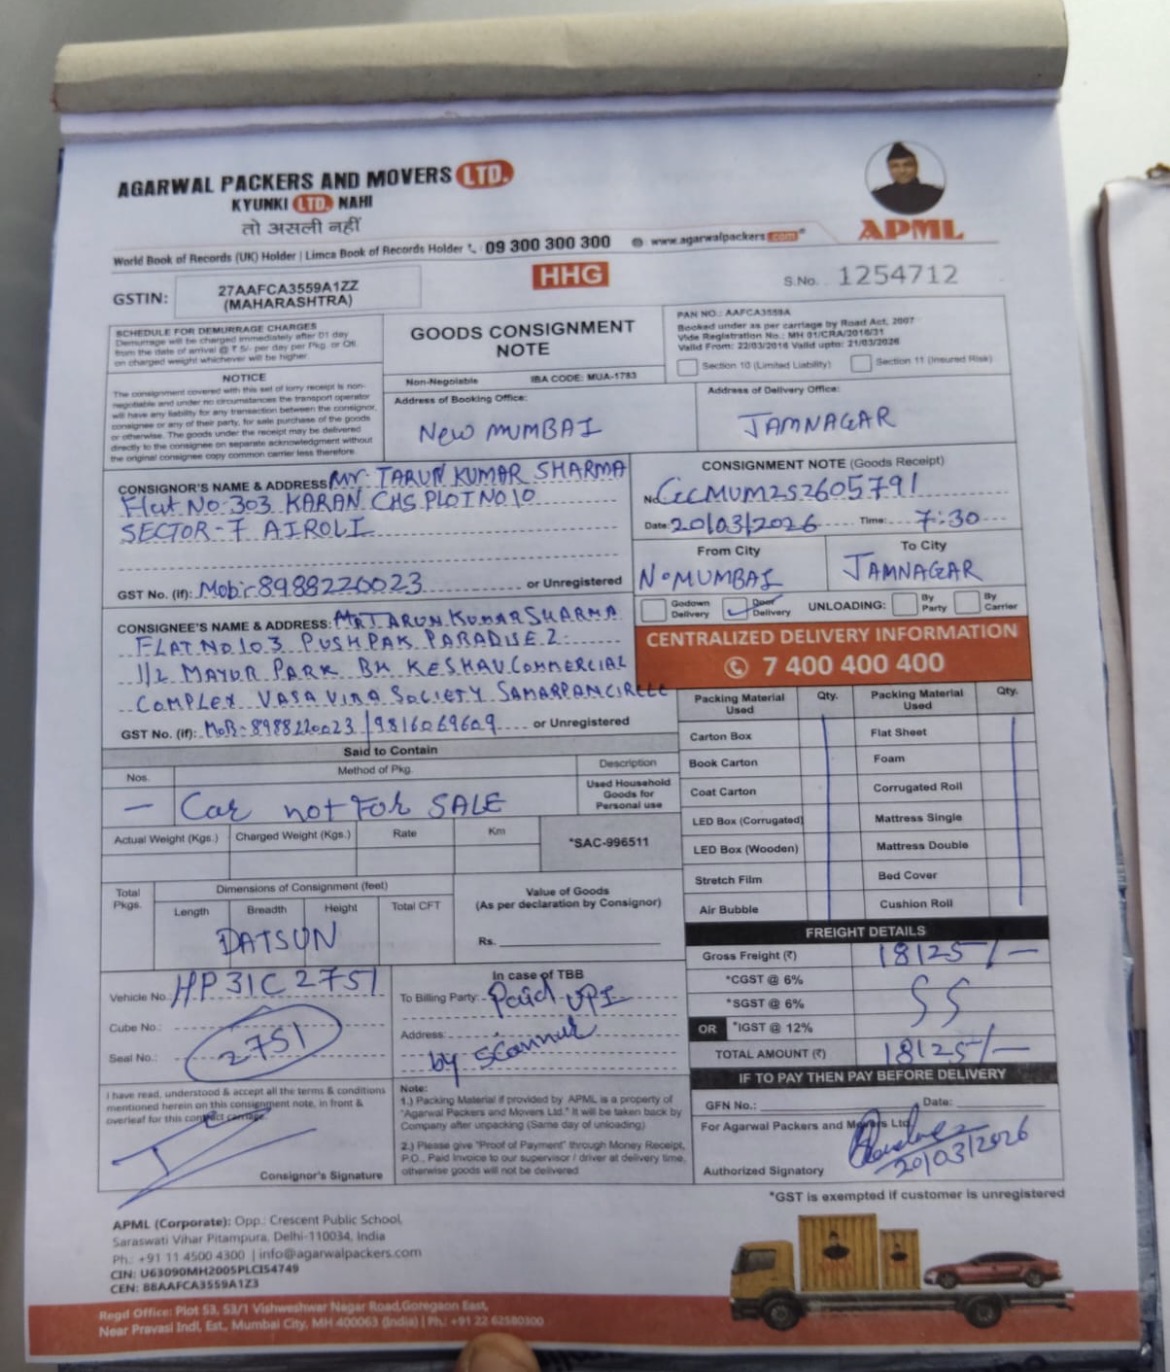 AGARWAL PACKERS AND MOVERS LTD.
KYUNKI LTD. NAHI
तो असली नहीं
APML
World Book of Records (UK) Holder | Limca Book of Records Holder 09 300 300 300 www.agarwalpackers.com
GSTIN: 27AAFCA3559A1ZZ
(MAHARASHTRA)
HHG
S.No. 1254712
SCHEDULE FOR DEMURRAGE CHARGES
Demurrage will be charged immediately after 01 day
from the date of arrival @ ₹ 5/- per day per Pkg. or Qtl.
on charged weight whichever will be higher.
NOTICE
The consignment covered with this set of lorry receipt is non-
negotiable and under no circumstances the transport operator
will have any liability for any transaction between the consignor,
consignee or any of their party, for sale purchase of the goods
or otherwise. The goods under the receipt may be delivered
directly to the consignee on separate acknowledgment without
the original consignee copy common carrier less therefore.
GOODS CONSIGNMENT
NOTE
Non-Negoiable IBA CODE: MUA-1783
PAN NO.: AAFCA3559A
Booked under as per carriage by Road Act, 2007
Vide Registration No.: MH 01/CRA/2016/31
Valid From: 22/03/2016 Valid upto: 21/03/2026
Section 10 (Limited Liability) Section 11 (Insured Risk)
Address of Booking Office:
New MUMBAI
Address of Delivery Office:
JAMNAGAR
CONSIGNOR'S NAME & ADDRESS Mr. TARUN KUMAR SHARMA
Flat No. 303 KARAN CHS PLOT NO 10
SECTOR-7 AIROLI
GST No. (if): Mob:- 8988220023 or Unregistered
CONSIGNMENT NOTE (Goods Receipt)
No. CCCMUM252605791
Date: 20/03/2026 Time: 7:30
From City
N.MUMBAI
To City
JAMNAGAR
Godown Delivery Door Delivery UNLOADING: By Party By Carrier
CENTRALIZED DELIVERY INFORMATION
7 400 400 400
CONSIGNEE'S NAME & ADDRESS: Mr TARUN KUMAR SHARMA
FLAT NO 103 PUSHPAK PARADISE 2
1/2 MAYUR PARK BH KESHAV COMMERCIAL
COMPLEX VASA VIRA SOCIETY SAMARPAN CIRCLE
GST No. (if): MOB:- 8988220023 / 9816069609 or Unregistered
Said to Contain
Nos. Method of Pkg. Description
— Car not FOR SALE
Used Household
Goods for
Personal use
Actual Weight (Kgs.) Charged Weight (Kgs.) Rate Km
*SAC-996511
Total Pkgs. Dimensions of Consignment (feet)
Length Breadth Height Total CFT
DATSUN
Value of Goods
(As per declaration by Consignor)
Rs.
Packing Material Used Qty. Packing Material Used Qty.
Carton Box Flat Sheet
Book Carton Foam
Coat Carton Corrugated Roll
LED Box (Corrugated) Mattress Single
LED Box (Wooden) Mattress Double
Stretch Film Bed Cover
Air Bubble Cushion Roll
FREIGHT DETAILS
Gross Freight (₹) 18125/-
*CGST @ 6%
*SGST @ 6%
OR *IGST @ 12%
TOTAL AMOUNT (₹) 18125/-
IF TO PAY THEN PAY BEFORE DELIVERY
Vehicle No. HP31C2751
Cube No.:
Seal No.: 2751
In case of TBB
To Billing Party: Paid UPI
Address:
by Scanner
I have read, understood & accept all the terms & conditions
mentioned herein on this consignment note, in front &
overleaf for this contract carriage.
Consignor's Signature
Note:
1.) Packing Material if provided by APML is a property of
"Agarwal Packers and Movers Ltd." It will be taken back by
Company after unpacking (Same day of unloading)
2.) Please give "Proof of Payment" through Money Receipt,
P.O., Paid Invoice to our supervisor / driver at delivery time,
otherwise goods will not be delivered
GFN No.: Date:
For Agarwal Packers and Movers Ltd.
20/03/2026
Authorized Signatory
*GST is exempted if customer is unregistered
APML (Corporate): Opp.: Crescent Public School,
Saraswati Vihar Pitampura, Delhi-110034, India
Ph.: +91 11 4500 4300 | info@agarwalpackers.com
CIN: U63090MH2005PLC154749
CEN: 88AAFCA3559A1Z3
Regd Office: Plot 53, 53/1 Vishweshwar Nagar Road,Goregaon East,
Near Pravasi Indl, Est., Mumbai City, MH 400063 (India) | Ph.: +91 22 62580300